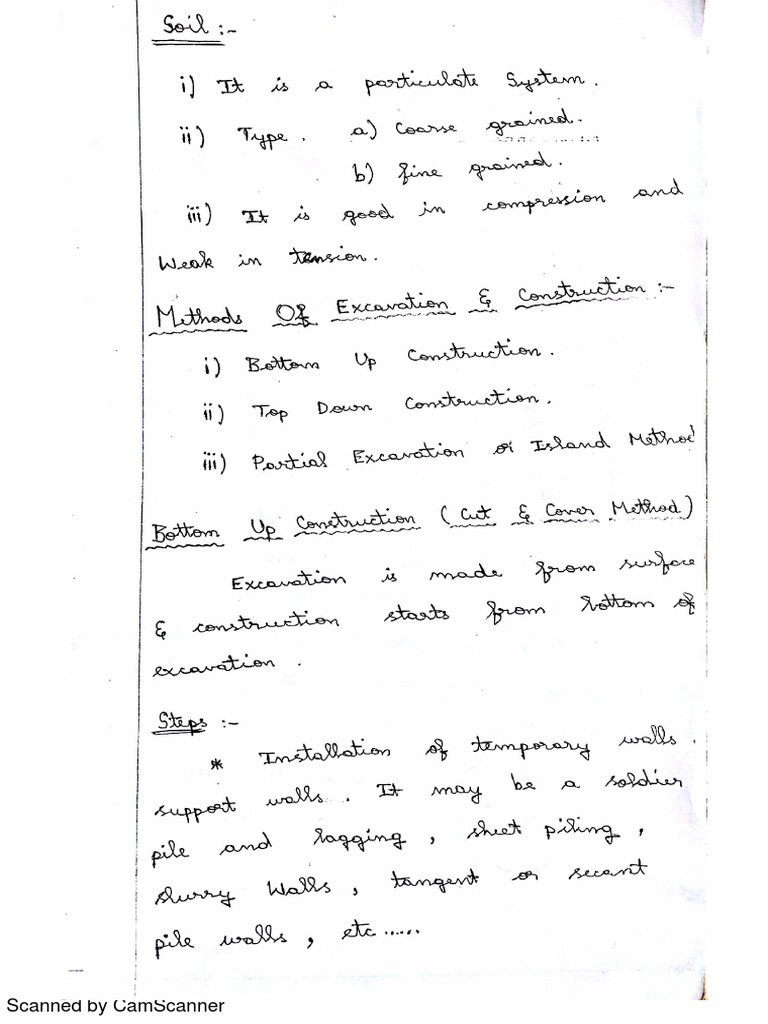 Soil :-
i) It is a particulate System.
ii) Type. a) Coarse grained.
b) fine grained.
iii) It is good in compression and
Weak in tension.
Methods Of Excavation & Construction :-
i) Bottom Up Construction.
ii) Top Down Construction.
iii) Partial Excavation or Island Method
Bottom Up Construction (Cut & Cover Method)
Excavation is made from surface
& construction starts from bottom of
excavation.
Steps :-
* Installation of temporary walls.
support walls. It may be a soldier
pile and lagging, sheet piling,
slurry Walls, tangent or secant
pile walls, etc......
Scanned by CamScanner